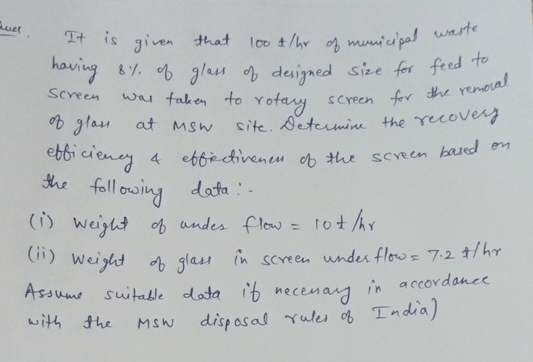 Ques. It is given that 100 t/hr of municipal waste
having 8% of glass of designed size for feed to
screen was taken to rotary screen for the removal
of glass at MSW site. Determine the recovery
efficiency & effectiveness of the screen based on
the following data:-
(i) Weight of under flow = 10 t/hr
(ii) Weight of glass in screen underflow = 7.2 t/hr
Assume suitable data if necessary in accordance
with the MSW disposal rules of India)